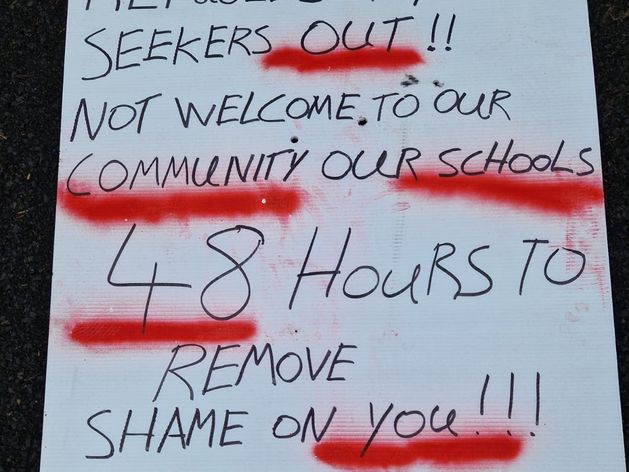 SEEKERS OUT!!
NOT WELCOME TO OUR
COMMUNITY OUR SCHOOLS
48 HOURS TO
REMOVE
SHAME ON YOU!!!